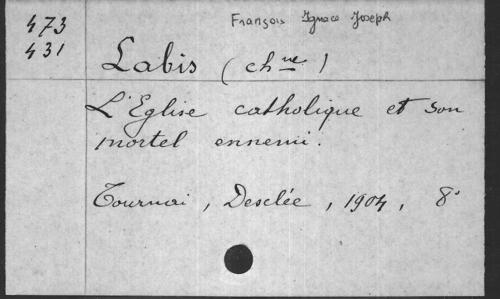 473 François Ignace Joseph
431
Labis (chne)
L'Eglise catholique et son
mortel ennemi.
Tournai, Desclée, 1904, 8°